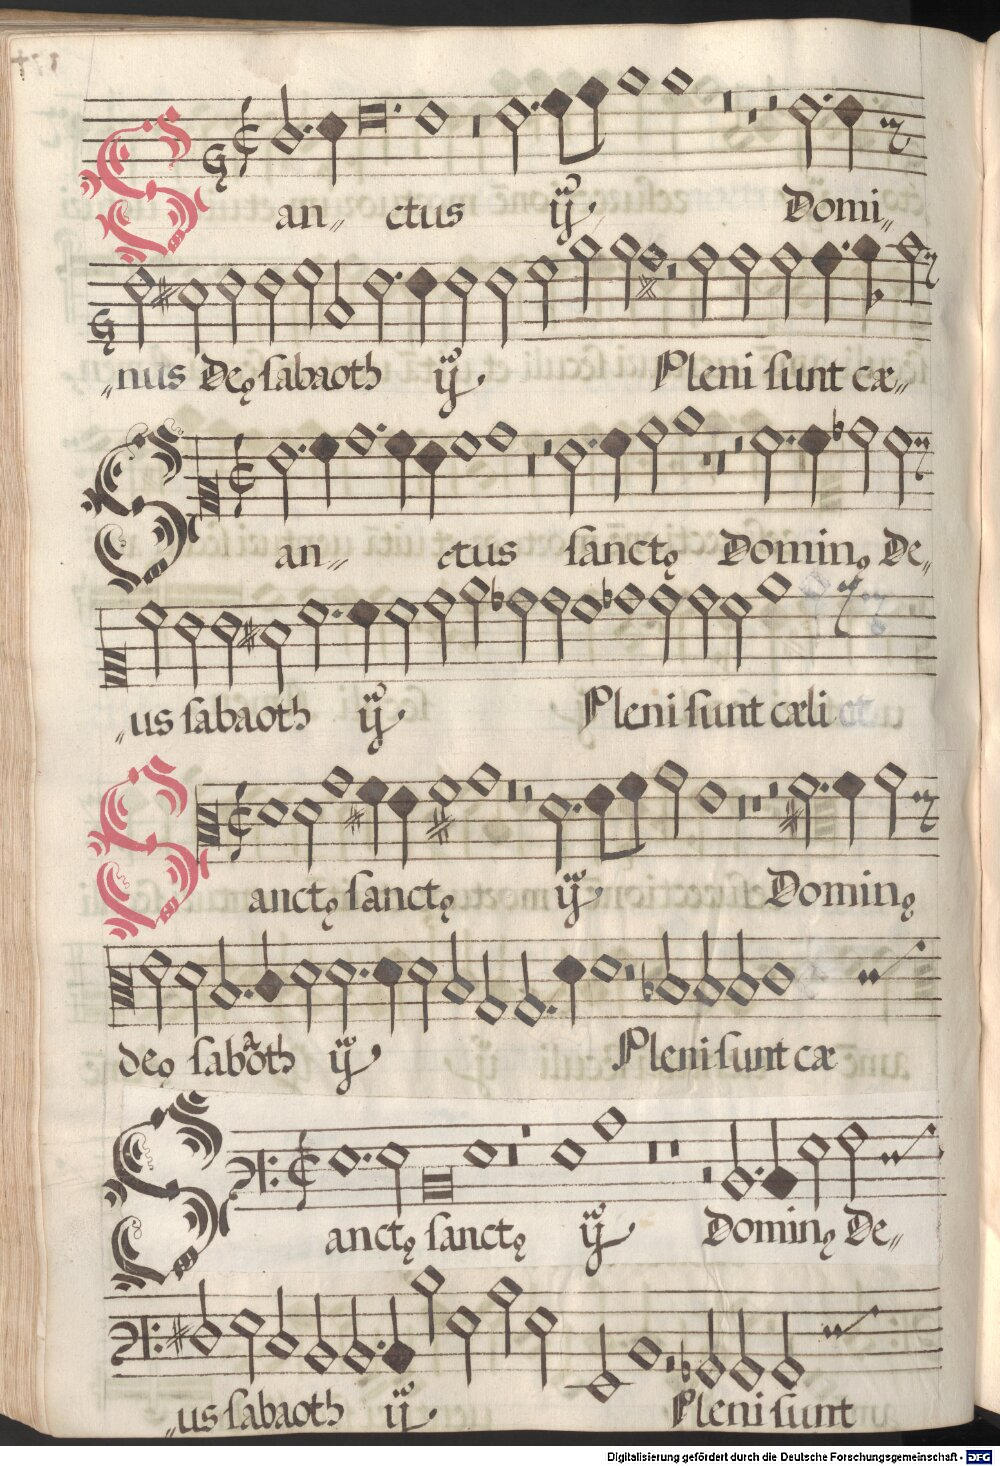 San„ ctus ij Domi„
„nus Deꝯ sabaoth ij Pleni sunt cæ„
San„ ctus sanctꝯ Dominꝯ De„
„us sabaoth ij Pleni sunt cæli et
Sanctꝯ sanctꝯ ij Dominꝯ
deꝯ sabaoth ij Pleni sunt cæ
Sanctꝯ sanctꝯ ij Dominꝯ De„
„us sabaoth ij Pleni sunt
Digitalisierung gefördert durch die Deutsche Forschungsgemeinschaft - DFG